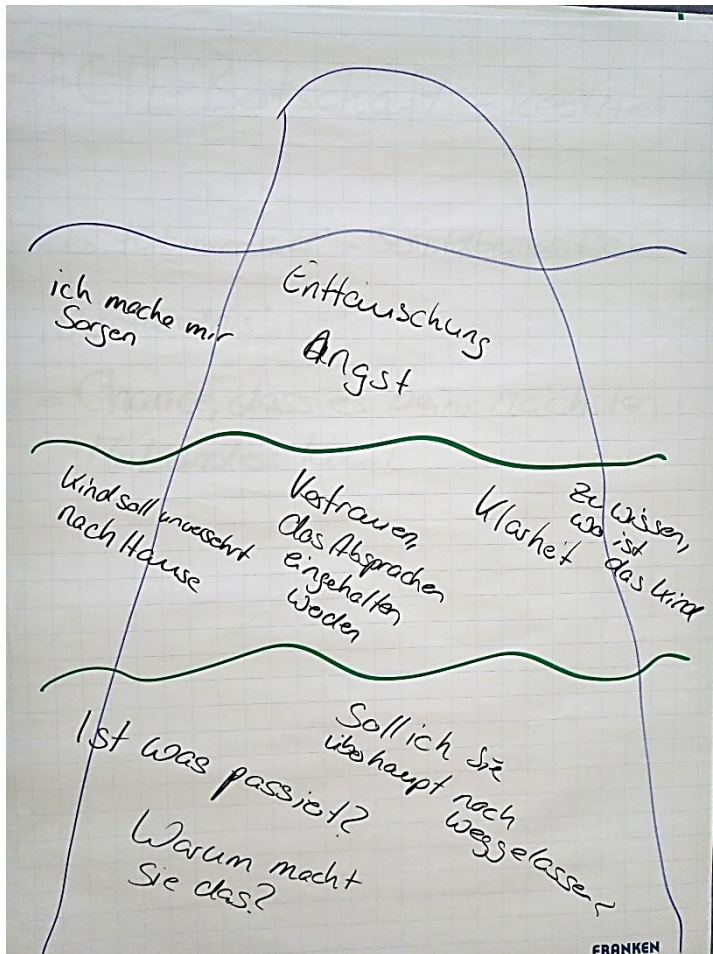 ich mache mir
Sorgen
Enttäuschung
Angst
Kind soll unversehrt
nach Hause
Vertrauen,
das Absprachen
eingehalten
werden
Klarheit
zu wissen,
wo ist
das Kind
Ist was passiert?
Warum macht
Sie das?
Soll ich Sie
überhaupt noch
weggelassen
FRANKEN